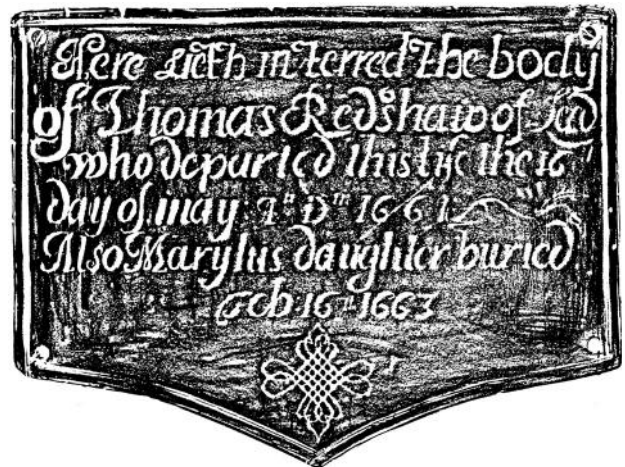 Here lieth interred the body
of Thomas Redshaw of
who departed this life the 16
day of may Aº Dᵐ 1661
Also Mary his daughter buried
Feb 16ᵗʰ 1663